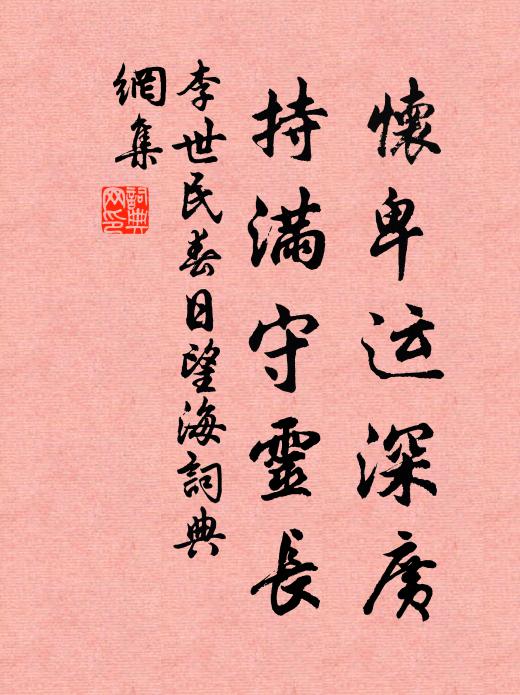 懷卑运深廣
持滿守靈長
李世民春日望海詞典
網集
詞典
网印